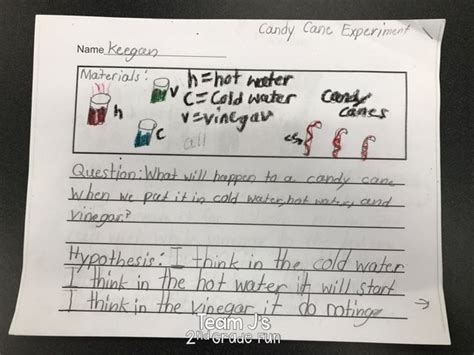 Candy Cane Experiment
Name Keegan
Materials:
h=hot water
C=Cold water
v=vinegar
h
v
c
Candy
canes
Question: What will happen to a candy cane
when we put it in cold water, hot water, and
vinegar?
Hypothesis: I think in the cold water
I think in the hot water it will start
I think in the vinegar it do notinge
Team J's
2nd Grade Fun